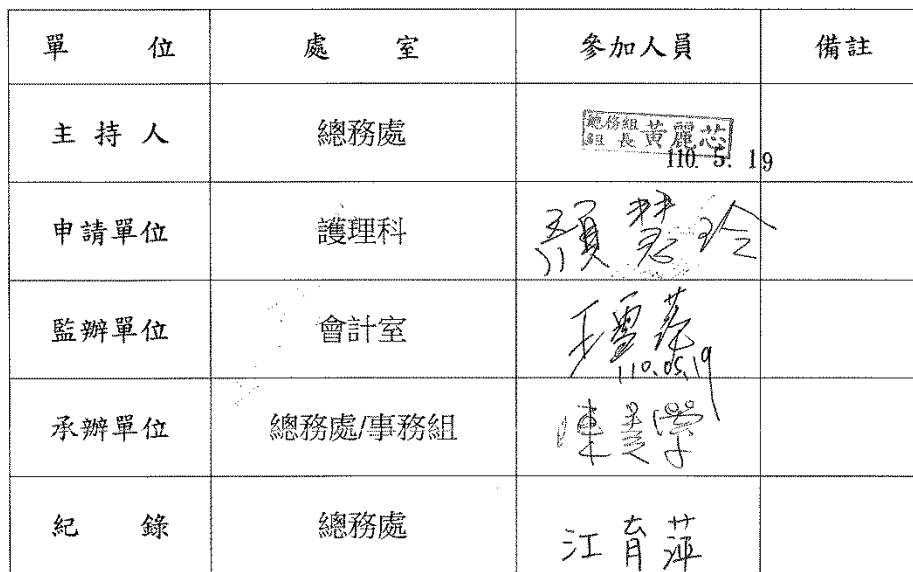 單 位 處 室 參加人員 備註
主 持 人 總務處 總務組 組長 黃麗芯 110. 5. 19
申請單位 護理科 顏慧玲
監辦單位 會計室 110.05.19
承辦單位 總務處/事務組
紀 錄 總務處 江育萍